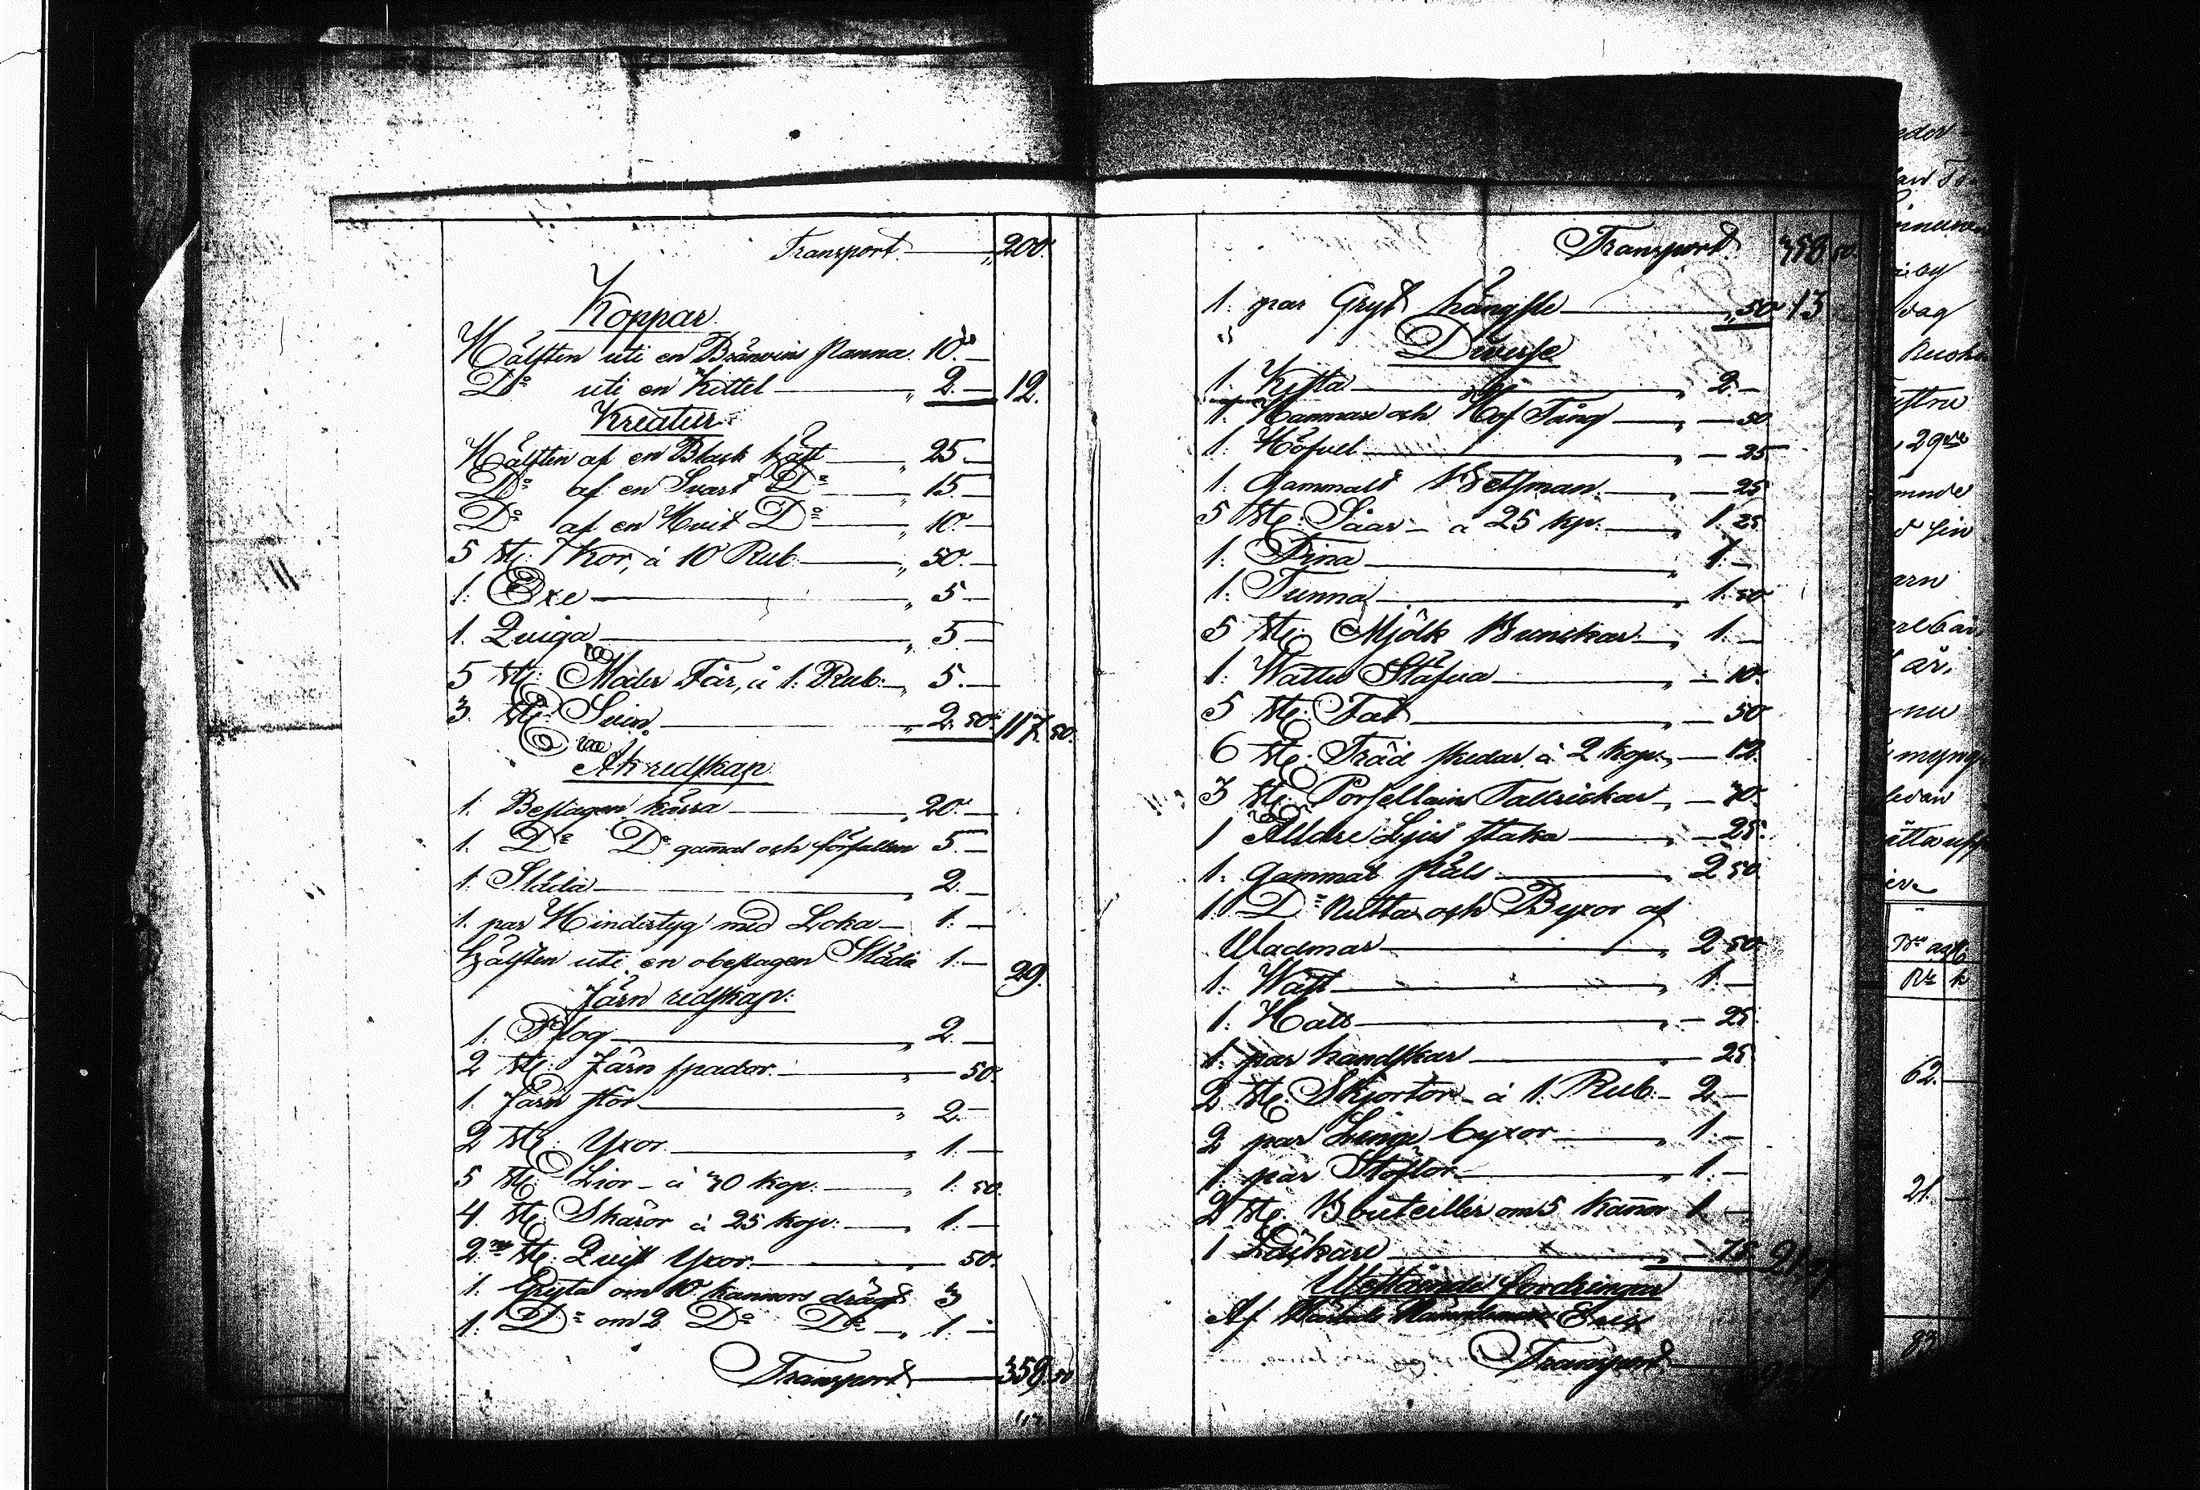 Transport „ 200.
Koppar
Hälften uti en Bränvins Panna 10. —
D:o uti en Kittel „ 2. — 12.
Kreatur
Hälften af en Black häst „ 25 —
D:o af en Svart D:o „ 15 —
D:o af en Hvit D:o „ 10 —
5 st: Kor, à 10 Rub. „ 50. —
1. Oxe „ 5 —
1. Quiga „ 5. —
5 st: Moder Får, à 1: Rub: „ 5. —
3. st: Svin „ 2. 50. 117 50.
Åkredskap
1. Beslagen kärra „ 20. —
1. D:o D:o gamal och förfallen 5. —
1. Släda „ 2. —
1. par Hindertyg med Loka 1. —
hälften uti en obeslagen Släda 1. — 29.
Järn redskap:
1. Plog „ 2. —
2 st: Järn spador „ — 50.
1. Järn stör „ 2. —
2 st: Yxor „ 1. —
5 st: Lior à 30 kop: „ 1. 50.
4. st: Skäror à 25 kop: „ 1. —
2 st: Quist Yxor „ 50.
1. Gryta om 10 kannors drägt 3
1. D:o om 2 D:o D:o „ 1. —
Transport 359. 50
Transport 359 50.
1. par Gryt hängsle „ 50 13
Diverse
1. Kista „ 2. —
1. Hammare och Hof Tång „ — 50
1. Höfvel „ — 25
1. Gammalt Betsman „ — 25
5 st: Såar à 25 kp: „ 1. 25
1. Tina „ 1. —
1. Tunna „ 1. 50
5 st: Mjölk Bunckar „ 1. —
1. Wattu Stäfva „ — 10.
5 st: Fat „ — 50
6 st: Träd skedar à 2 kop: „ — 12.
3 st: Porsellain Tallrickar „ — 30.
1 Äldre Ljus staka „ — 25.
1. Gammal Päls 2 50
1. D:o och Byxor af
Wadmar 2 50.
1. Wäst „ 1. —
1. Hatt „ — 25.
1. par handskar „ 25
2 st: Skjortor à 1. Rub. 2. —
2 par Linge byxor „ 1. —
1. par Stöflor „ 1. —
2 st: Bouteiller om 5 kannor 1. —
1 75 21
Utestående fordringar
Af Erik
Transport
dag
29
arn
är,
nu
R:r k
62. —
21. —
83